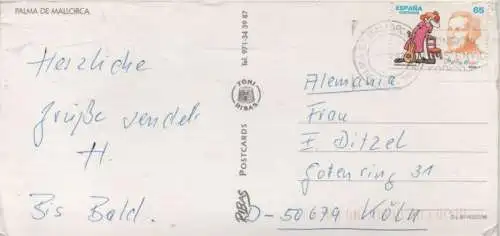 PALMA DE MALLORCA
Herzliche
Grüße sendet
H.
Bis Bald.
Tel. 971-34 39 87
TONI
RIBAS
POSTCARDS
RIBAS
ESPAÑA
CORREOS
65
Alemania
Frau
E. Ditzel
Gotenring 31
D-50679 Köln